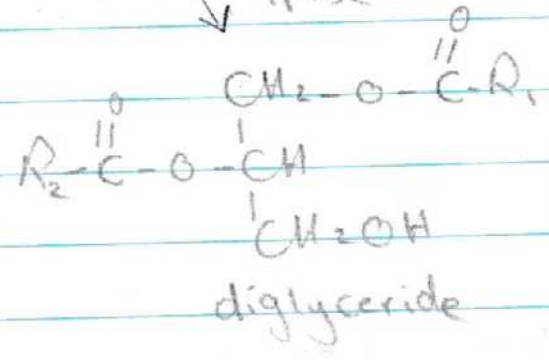 O
O CH2-O-C-R1
R2-C-O-CH
CH2OH
diglyceride